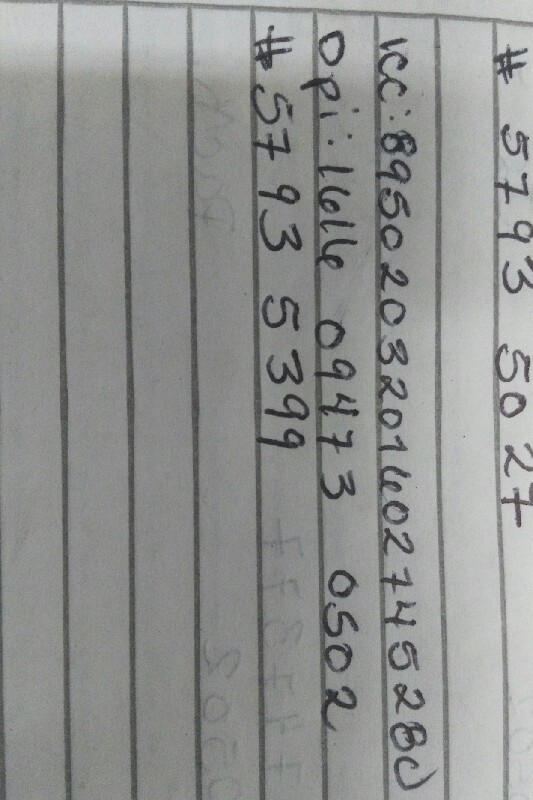 # 5793 5027
ICC: 8950203201602745280
Dpi: 1616 09473 0502
# 5793 5399